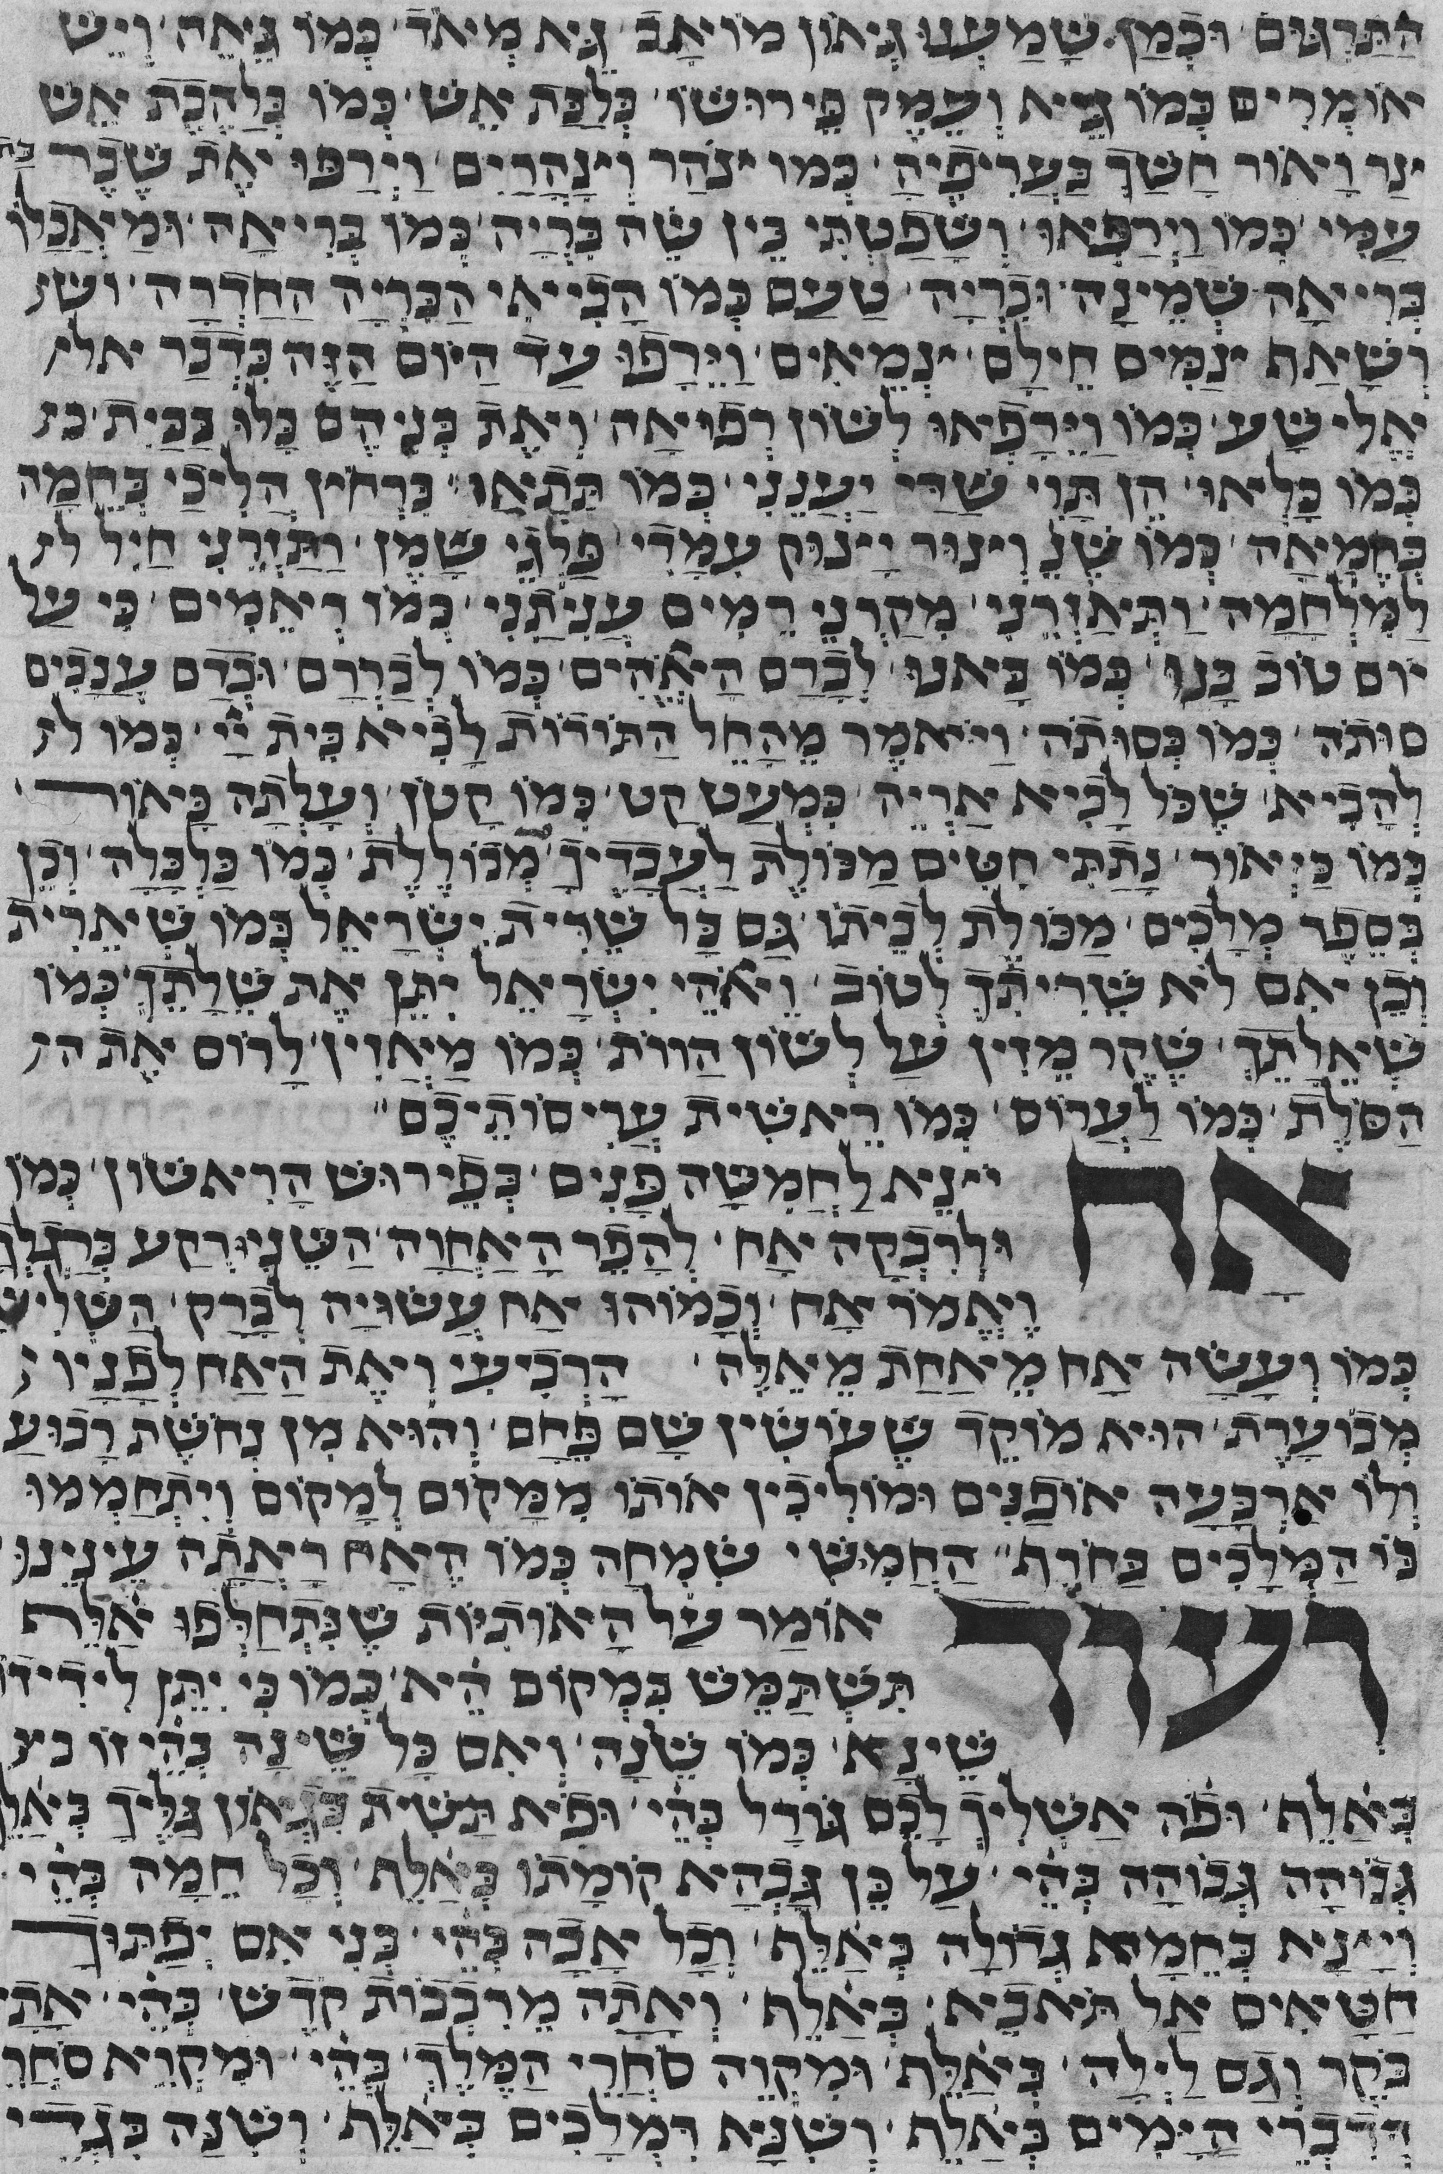 הַתַּרְגּוּם· וּכְמַן· שָׁמַעְנוּ גְּאוֹן מוֹאָב גֵּא מְאֹד· כְּמוֹ גֵּאֶה· וְיֵשׁ
אוֹמְרִים כְּמוֹ גֵּיא וְעֵמֶק פֵּירוּשׁוֹ· כְּלַבַּת אֵשׁ· כְּמוֹ כְּלֶהֶבֶת אֵשׁ
ינַר וָאוֹר חָשַׁךְ בַּעֲרִיפֶיהָ· כְּמוֹ ינְהַר וְינָהָרִים· וַיְרַפּוּ אֶת שֶׁבֶר בת
עַמִּי· כְּמוֹ וַיְרַפְּאוּ· וְשָׁפַטְתִּי בֵּין שֶׂה בִרְיָה· כְּמוֹ בְּרִיאָה· וּמַאֲכָלוֹ
בְּרִיאָה שְׁמֵינָה· וּבִרְיָה· טַעַם כְּמוֹ הָבִיאִי הַבִּרְיָה הַחַדְרָה· ושׁ
וְשָׁאַת ינַמִּים חֵילָם· ינְמִאִים· וַיֵּרָפוּ עַד הַיּוֹם הַזֶּה כִּדְבַר אל
אֱלִישָׁע· כְּמוֹ וַיֵּרָפְאוּ לְשׁוֹן רְפוּאָה· וְאֶת בְּנֵיהֶם כָּלוּ בַבַּיִת· כ
כְּמוֹ כָּלְאוּ· הֶן תָּוִי שַׁדַּי יַעֲנֵנִי· כְּמוֹ תַּאֲוָ· בִּרְחֹץ הֲלִיכַי בְּחֵמָה
בְּחֶמְאָה· כְּמוֹ שֶׁנֶּ וְינוּר וְיָנוּק עִמָּדִי· פַּלְגֵי שָׁמֶן· וַתַּזְרֵנִי חַיִל ל
לַמִּלְחָמָה· וַתְּאַזְּרֵנִי· מִקַּרְנֵי רֵמִים עֲנִיתָנִי· כְּמוֹ רְאֵמִים· כִּי עַל
יוֹם טוֹב בָּנוּ· כְּמוֹ בָּאנוּ· לְבָרָם הָאֱלֹהִים· כְּמוֹ לְבָרְרָם· וּבְדַם עֲנָבִים
סוּתֹה· כְּמוֹ כְּסוּתֹה· וַיֹּאמֶר מֵהָחֵל הַתּוֹדוֹת לָבִיא בֵית יְיָ· כְּמוֹ ל
לְהָבִיא· שֶׁכֹּל לָבִיא אַרְיֵה· כִּמְעַט קַט· כְּמוֹ קָטֹן· וְעָלְתָה כָאוֹר
כְּמוֹ כַּיְאוֹר· נָתַתִּי חִטִּים מַכּוֹלֶת לַעֲבָדֶיךָ מְכוֹלְלֶת· כְּמוֹ כַּלְכָּלָה· וְכֵן
בְּסֵפֶר מְלָכִים· מַכּוֹלֶת לְבֵיתוֹ· גַּם כָּל שֵׁרִית יִשְׂרָאֵל כְּמוֹ שְׁאֵרִית
וְכֵן אִם לֹא שֵׁרִיתְךָ לְטוֹב· וֵאלֹהֵי יִשְׂרָאֵל יִתֵּן אֶת שֵׁלָתֵךְ· כְּמוֹ
שְׁאֵלָתֵךְ· שֶׁקֶר מֵזִין עַל לְשׁוֹן הַוּוֹת· כְּמוֹ מַאֲזִין· לָרוֹס אֶת ה
הַסֹּלֶת· כְּמוֹ לַעֲרוֹס· כְּמוֹ רֵאשִׁית עֲרִיסוֹתֵיכֶם:
אח יינֵא לַחֲמִשָּׁה פָנִים· בְּפֵירוּשׁ הָרִאשׁוֹן· כְּמוֹ
וּלְרִבְקָה אָח· לְהָפֵר הָאַחֲוָה· הַשֵּׁנִי· רְקַע בְּרַגְלְךָ
וֶאֱמֹר אָח· וְכָמוֹהוּ אַח עֲשׂוּיָה לְבָרָק· הַשְּׁלִישִׁ
כְּמוֹ וְעָשָׂה אַח מֵאַחַת מֵאֵלֶּה· הָרְבִיעִי וְאֶת הָאַח לְפָנָיו
מְבוֹעָרֶת· הוּא מוֹקֵד שֶׁעוֹשִׂין שָׁם פֶּחָם· וְהוּא מִן נְחֹשֶׁת רָבוּעַ
וְלוֹ אַרְבָּעָה אוֹפַנִּים וּמוֹלִיכִין אוֹתוֹ מִמָּקוֹם לְמָקוֹם וְיִתְחַמְּמוּ
בּוֹ הַמְּלָכִים בַּחֹרֶף: הַחֲמִשִּׁי שִׂמְחָה כְּמוֹ הֶאָח רָאֲתָה עֵינֵינוּ
ועוד אוֹמַר עַל הָאוֹתִיּוֹת שֶׁנִּתְחַלְּפוּ אָלֶף
תִּשְׁתַּמֵּשׁ בִּמְקוֹם הֵא· כְּמוֹ כִּי יִתֵּן לִידִידוֹ
שֵׁינָא· כְּמוֹ שֵׁנָה· וְאִם כָּל שֵׁינָה בְּהֵי זוֹ כ
בְּאָלֶף· וּפֹה אַשְׁלִיךְ לָכֶם גּוֹרָל בְּהֵי· וּפֹא תַּשִׁית בִּגְאוֹן גַּלֶּיךָ בְּאָלֶ
גְּבוֹהָה גְּבוֹהָה בְּהֵי· עַל כֵּן גָּבְהָא קוֹמָתוֹ בְּאָלֶף· וְכָל חֵמָה בְּהֵי
וְיינֵא בְּחֵמָא גְּדוֹלָה בְּאָלֶף· וְכָל אָבָה בְּהֵי· בְּנִי אִם יְפַתּוּךָ
חַטָּאִים אַל תֹּאבֵא· בְּאָלֶף· וְאָתָה מֵרִבְבוֹת קֹדֶשׁ· בְּהֵי· אָתָא
בֹקֶר וְגַם לַיְלָה· בְּאָלֶף· וּמִקְוֵה סֹחֲרֵי הַמֶּלֶךְ· בְּהֵי· וּמִקְוֵא סֹחֲרֵ
דְּדִבְרֵי הַיָּמִים בְּאָלֶף· וְשִׁנָּא דִּמְלָכִים בְּאָלֶף· וְשִׁנָּה בִּגְדֵי